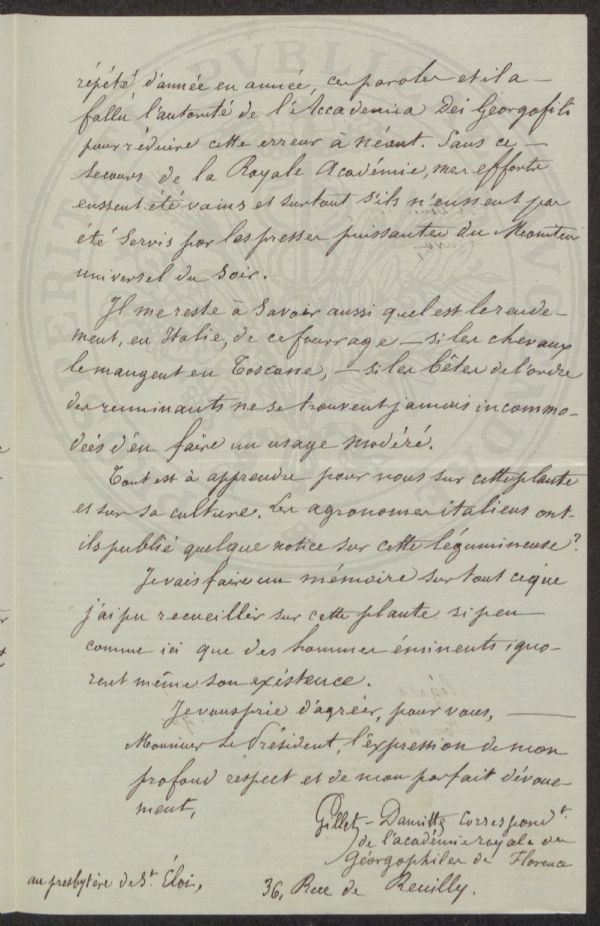 répété d'année en année, ces paroles et il a
fallu l'autorité de l'Accademia Dei Georgofili
pour réduire cette erreur à néant. Sans ce
secours de la Royale Académie, mes efforts
eussent été vains et surtout s'ils n'eussent pas
été servis par les presses puissantes du Moniteur
universel du Soir.
Il me reste à savoir aussi quel est le rende-
ment, en Italie, de ce fourrage – si les chevaux
le mangent en Toscane, – si les bêtes de l'ordre
des ruminants ne se trouvent jamais incommo-
deés d'en faire un usage modéré.
Tout est à apprendre pour nous sur cette plante
et sur sa culture. Les agronomes italiens ont-
ils publié quelque notice sur cette légumineuse?
Je vais faire un mémoire sur tout ce que
j'ai pu recueillir sur cette plante si peu
connue ici que des hommes éminents igno-
rent même son existence.
Je vous prie d'agréer, pour vous,
Monsieur le Président, l'expression de mon
profond respect et de mon parfait dévoue-
ment,
Gillet-Damitte Correspond.t
de l'académie royale des
Géorgophiles de Florence
au presbytère de St. Éloi,
36, Rue de Reuilly.